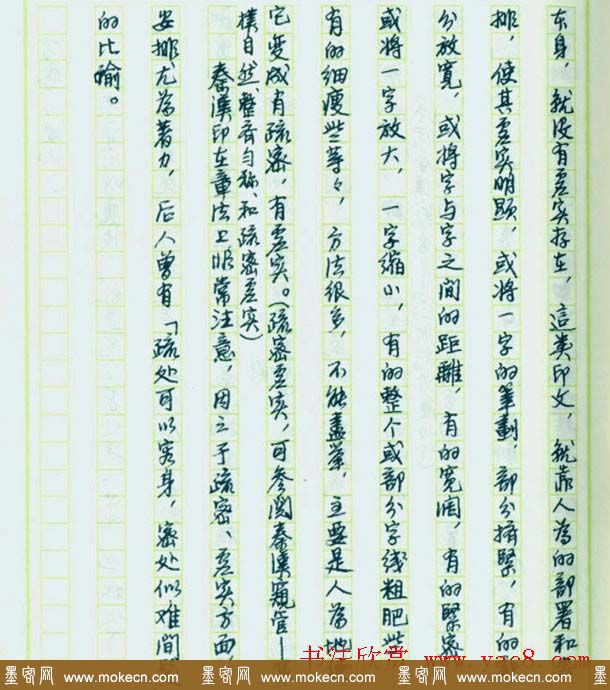 本身，就没有虚实存在，這类印文，就靠人为的部署和
排，使其虚实明顕，或将一字的筆劃，部分擠緊，有的
分放宽，或将字与字之间的距離，有的宽阔，有的緊密
或将一字放大，一字缩小，有的整个或部分字线粗肥些
有的细瘦些等々，方法很多，不能盡举，主要是人为地
它变成有疏密，有虚实。（疏密虚实，可参阅秦漢窥管—
樸自然、整齐匀称、和疏密虚实）
秦漢印在章法上非常注意，因之于疏密、虚实方面
安排尤为着力，后人曾有「疏处可以容身，密处似难间
的比喻。
书法欣赏 www.yac8.com
墨客网 www.mokecn.com 墨客网 www.mokecn.com 墨客网 www.mokecn.com